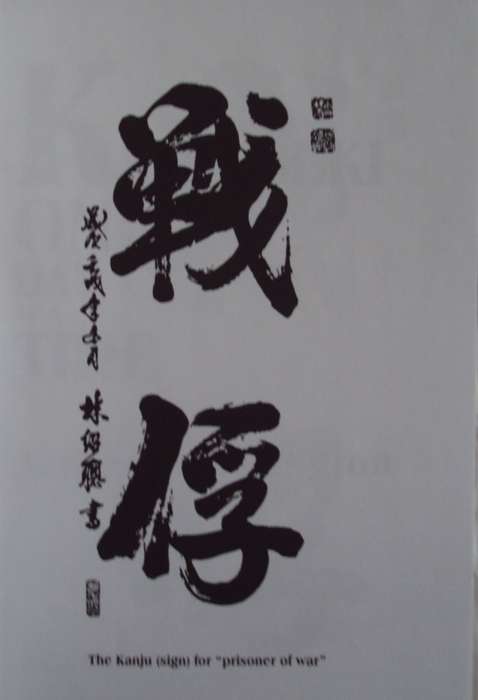 戰俘
歲次壬戌年月 林紹興書
The Kanju (sign) for "prisoner of war"